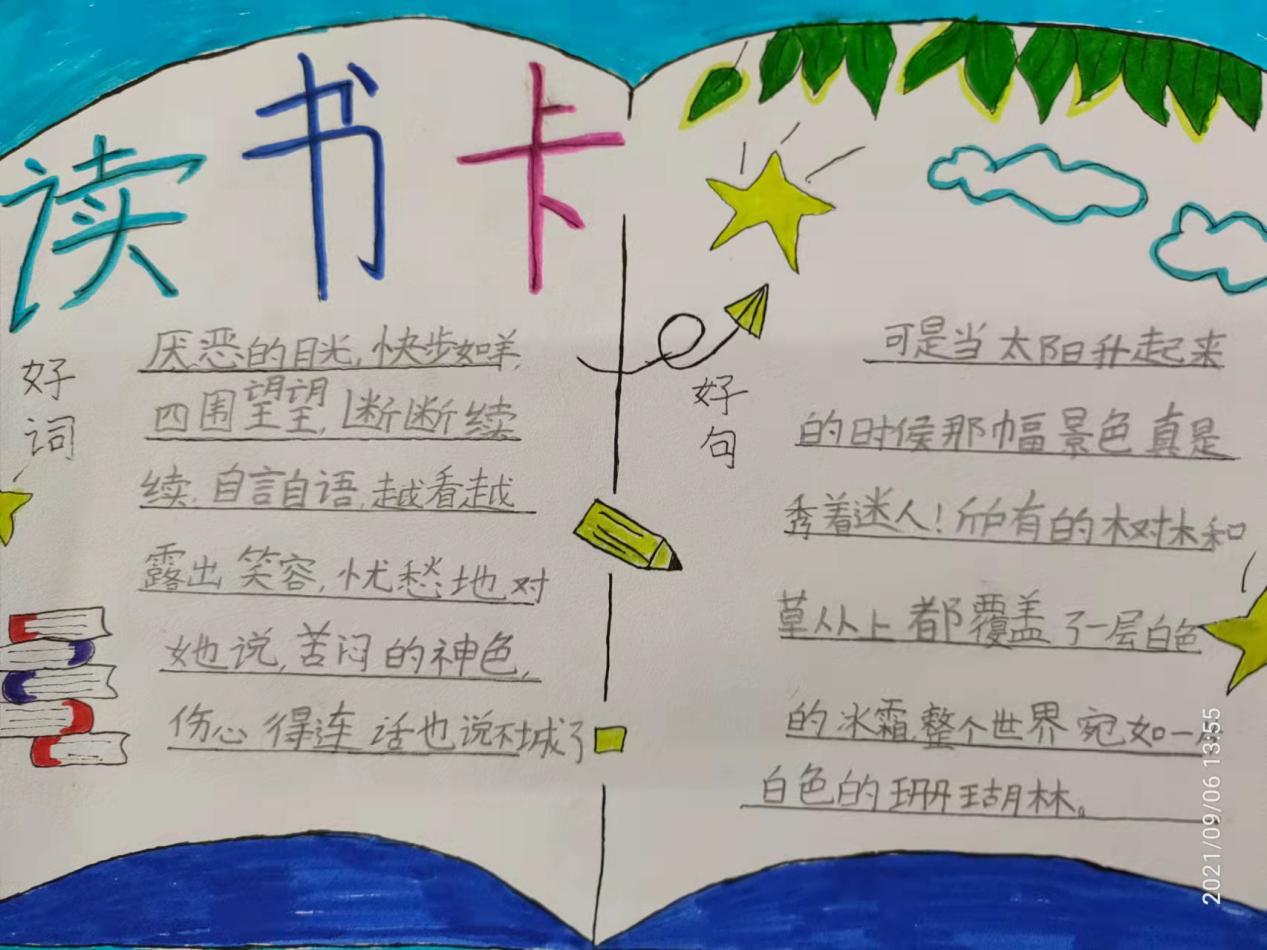 读书卡
好词
厌恶的目光,快步如羊,
四围望望,断断续
续,自言自语,越看越
露出笑容,忧愁地对
她说,苦闷的神色,
伤心得连话也说不城了
好句
可是当太阳升起来
的时侯那幅景色真是
秀着迷人!所有的树木和
草从上都覆盖了一层白色
的冰霜,整个世界宛如一
白色的珊瑚林。
2021/09/06 13:55